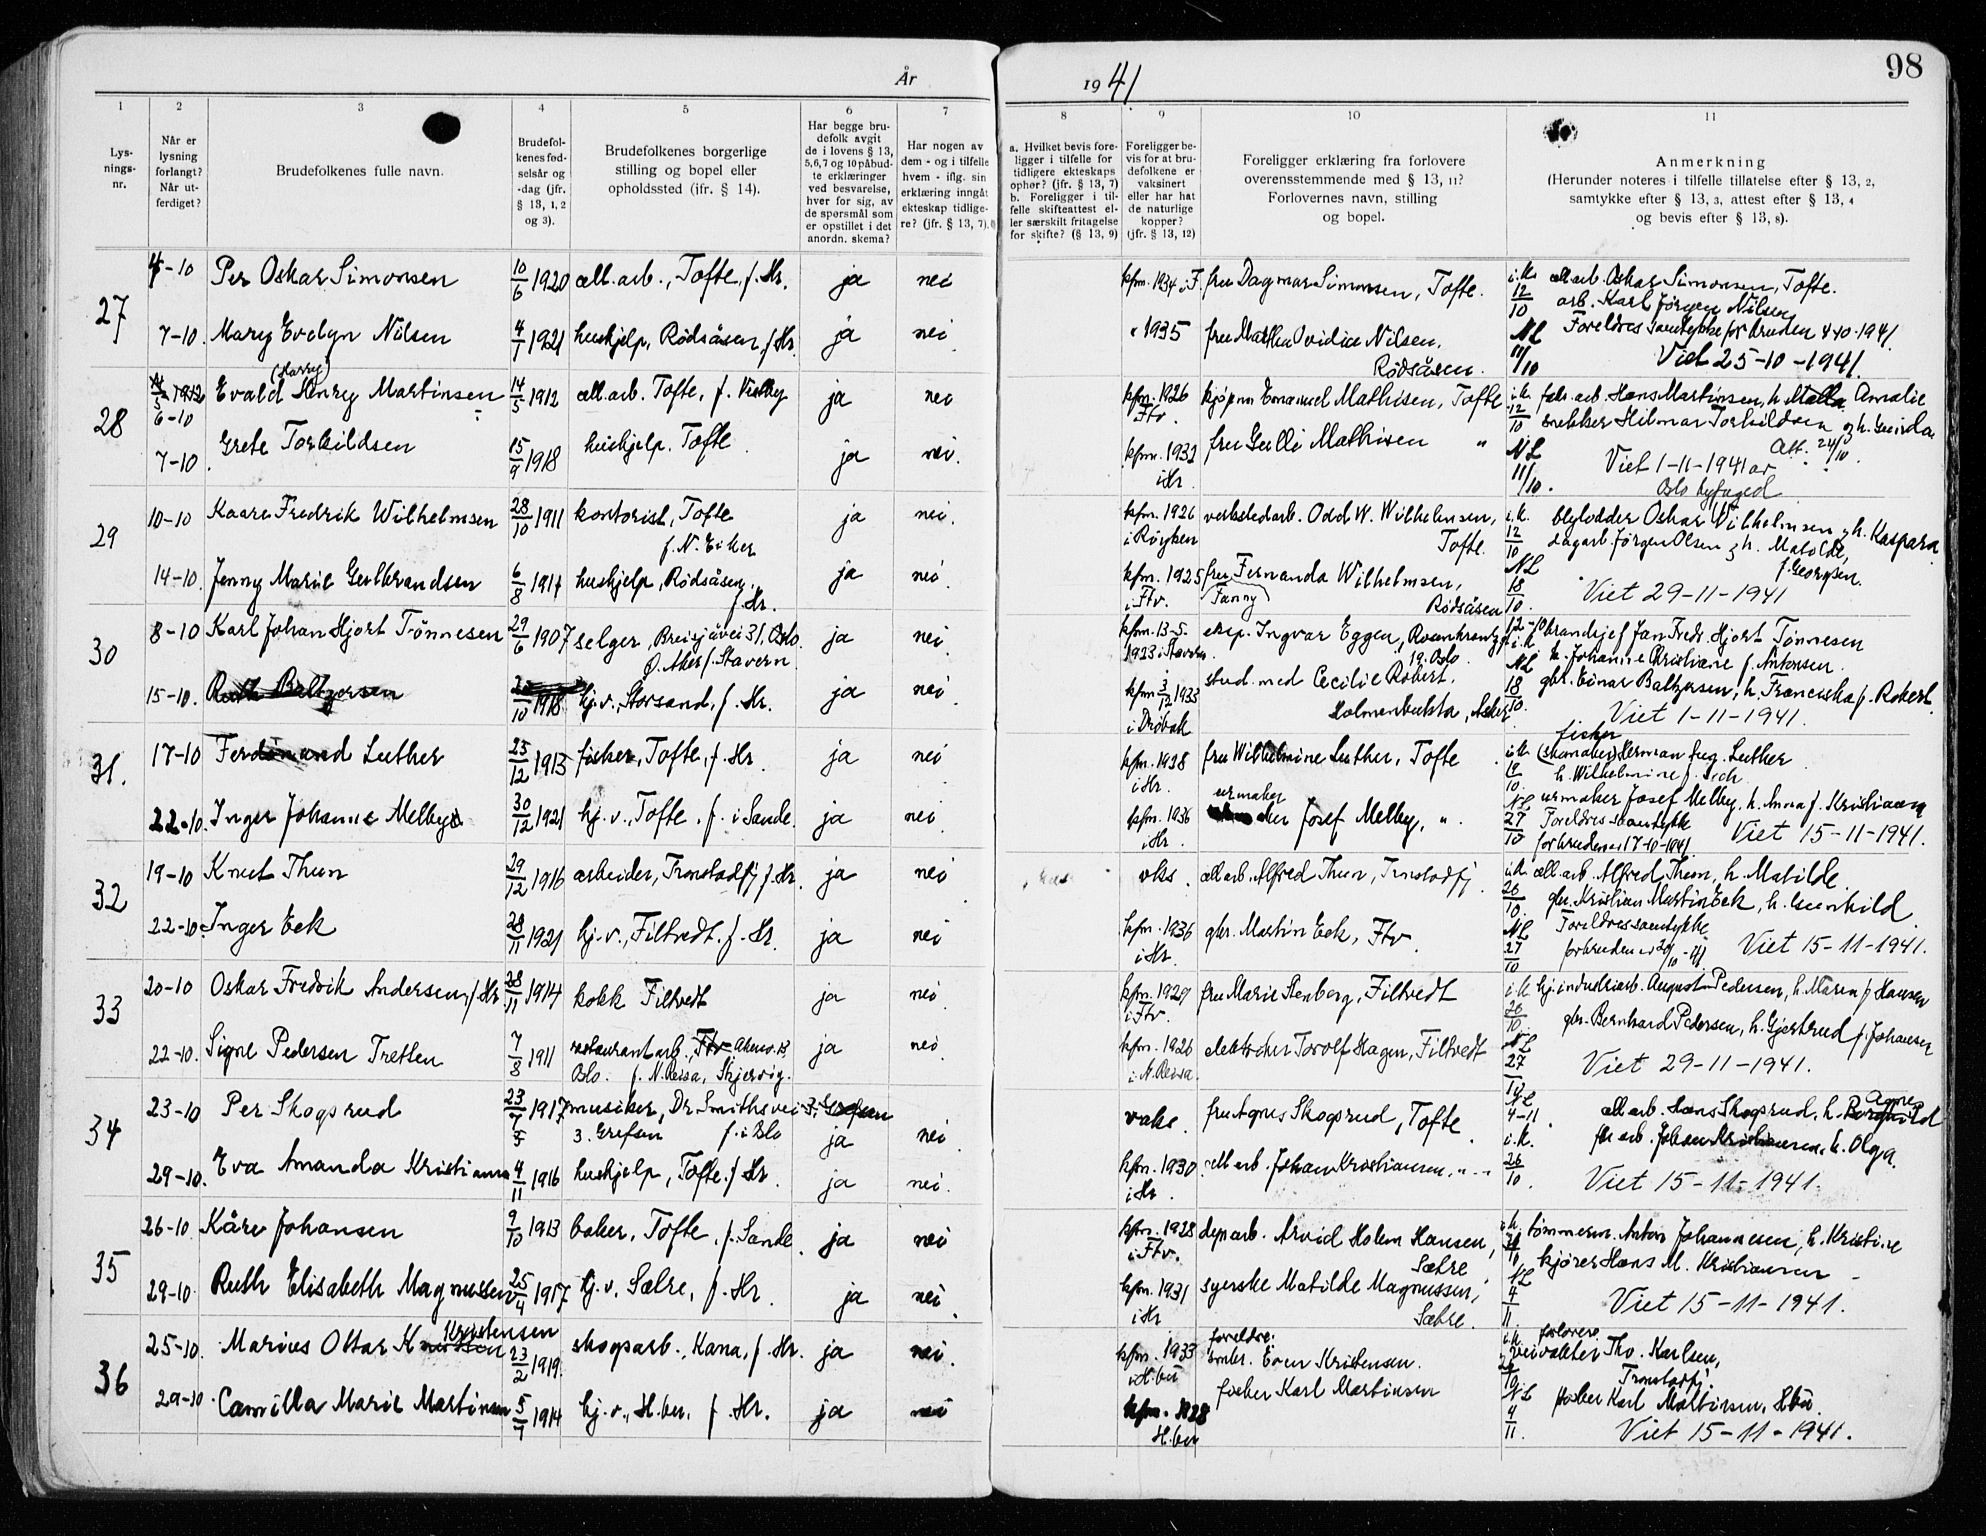 År 1941
98
1 2 3 4 5 6 7 8 9 10 11
Lysningsnr.
Når er lysning forlangt? Når utferdiget?
Brudefolkenes fulle navn.
Brudefolkenes fødselsår og -dag (jfr. § 13, 1, 2 og 3).
Brudefolkenes borgerlige stilling og bopel eller opholdssted (ifr. § 14).
Har begge brudefolk avgit de i lovens § 13, 5,6,7 og 10 påbudte erklæringer ved besvarelse, hver for sig, av de spørsmål som er opstillet i det anordn. skema?
Har nogen av dem - og i tilfelle hvem - iflg. sin erklæring inngått ekteskap tidligere? (jfr. § 13, 7).
a. Hvilket bevis foreligger i tilfelle for tidligere ekteskaps ophør? (jfr. § 13, 7) b. Foreligger i tilfelle skifteattest eller særskilt fritagelse for skifte? (§ 13, 9)
Foreligger bevis for at brudefolkene er vaksinert eller har hat de naturlige kopper? (jfr. § 13, 12)
Foreligger erklæring fra forlovere overensstemmende med § 13, 11? Forlovernes navn, stilling og bopel.
Anmerkning (Herunder noteres i tilfelle tillatelse efter § 13, 2, samtykke efter § 13, 3, attest efter § 13, 4 og bevis efter § 13, 8).
27
4-10 Per Oskar Simonsen 10/6 1920 cell.arb., Tofte, f. Hr. ja nei kfm. 1934 i F. fru Dagmar Simonsen, Tofte. i.k. 12/10 cell.arb. Oskar Simonsen, Tofte.
arb. Karl Jörgen Nilsen
7-10 Mary Evelyn Nilsen 4/1 1921 hushjelp, Rødsåsen, f. Hr. ja nei " 1935 fru Martha Ovidia Nilsen, Rødsåsen. NL 11/10 Foreldres samtykke for bruden 4-10-1941.
Viet 25-10-1941.
28
6-10 Evald Henry (Harry) Martinsen 14/5 1912 cell.arb. Tofte, f. ja nei kfm. 1926 Ftv. kjøpm Emanuel Mathisen, Tofte i.k. 12/10 fabr. arb. Hans Martinsen, h. Malla Amalie
snekker Hilmar Torkildsen og h. Guirda
7-10 Grete Torkildsen 15/9 1918 hushjelp. Tofte ja nei. kfm. 1932 i Hr. fru Gulli Mathisen " NL 11/10. Att. 24/10.
Viet 1-11-1941 av
Oslo byfoged
29
10-10 Kaare Fredrik Wilhelmsen 28/10 1911 kontorist, Tofte f. N. Eiker ja nei. kfm. 1926 i Røyken verkstedarb. Odd W. Wilhelmsen, Tofte. i.k. 12/10 blylodder Oskar Wilhelmsen og h. Kaspara
dagarb. Jørgen Olsen og h. Matolde, f. Georgsen.
14-10. Jenny Marie Gulbrandsen 6/8 1914 hushjelp, Rødsåsen, f. Hr. ja nei kfm. 1925 i Ftv. fru Fernanda (Fanny) Wilhelmsen, Rødsåsen NL 18/10. Viet 29-11-1941
30
8-10 Karl Johan Hjort Tönnesen 29/6 1907 selger, Breisjåvei 31, Oslo. Ø. Aker f. Stavern ja nei. kfm. 13-5-1923 i Stavern. eksp. Ingvar Eggen, Rosenkrantzgt. 19. Oslo. 12-10 i.k. brandsjef Jan Fredr. Hjort Tønnesen
h. Johanne Kristiane f. Antonsen.
15-10. Ruth Baltzersen /10 1918 hj.v., Storsand, f. Hr. ja nei. kfm 3/12 1933 i Drøbak stud. med Cecilie Robert, Holmenbukta, Asker NL 18/10. gbr. Einar Baltzersen, h. Franciska f. Robert
Viet 1-11-1941.
31.
17-10 Ferdinand Luther 23/12 1913 fisker, Tofte, f. Hr. ja nei kfm. 1928 i Hr. fru Wilhelmine Luther, Tofte i.k. 19/10. fisker (skomaker) Herman Aug. Luther
h. Wilhelmine f.
22-10. Inger Johanne Melbye 30/12 1921 hj.v., Tofte, f. i Sande. ja nei kfm. 1936 i Hr. urmaker Josef Melby, ". NL 27/10 urmaker Josef Melby, h. Anna f. Kristiansen
Foreldres samtykke for bruden 17-10-1941. Viet 15-11-1941.
32
19-10 Knut Thun 29/12 1916 arbeider, Tronstadfj f. Hr. ja nei vks. cell arb. Alfred Thun, Tronstadfj. i.k. 26/10. cell. arb. Alfred Thun, h. Matilde
gbr. Kristian Martin Eek, h. Gunhild
22-10. Inger Eek 28/11 1921 hj.v., Filtvedt. f. Hr. ja nei kfm. 1936 i Hr. gbr. Martin Eek, Ftv NL 27/10 Foreldres samtykke for bruden 20/10-41 Viet 15-11-1941.
33
20-10 Oskar Fredrik Andersen, f Hr 28/11 1914 kokk Filtvedt ja nei kfm. 1929 i Ftv. fru Marie Stenberg, Filtvedt i.k. 26/10. hj. industriarb. August Pedersen, h. Maren f Hansen
gbr. Bernhard Pedersen, h. Gjertrud f. Johansen
22-10. Signe Pedersen Tretten 7/8 1911 restaurantarb. Ftv Oslo. f. N. Reisa, Skjervøy. ja nei kfm. 1926 i N. Reisa. elektriker Torolf Hagen, Filtvedt NL 27/10 Viet 29-11-1941.
34
23-10 Per Skogsrud 23/7 1917 musiker, Dr. Smithsvei 3. Grefsen 3. Grefsen f. i Oslo ja nei. vaks. fru Agnes Skogsrud, Tofte. NL 4-11 cell arb. Hans Skogsrud, h. Borghild Agnes
29-10. Eva Amanda Kristiansen 4/11 1916 hushjelp, Tofte. f Hr. ja nei. kfm. 1930 i Hr. cell arb. Johan Kristiansen, " - " i.k. 26/10. arb. Johan Kristiansen, h. Olga.
Viet 15-11-1941.
35
26-10 Kåre Johansen 9/10 1913 baker, Tofte, f. Sande. ja nei kfm. 1928 i Ftv. arb. Arvid Holm Hansen, Sætre i.k. tømmerm. Anton Johannesen, h. Kristine
kjører Hans M. Kristiansen
29-10 Ruth Elisabeth Magnussen 25/4 1917 hj.v, Sætre, f. Hr. ja nei. kfm. 1931 i Hr syerske Matilde Magnussen, Sætre. NL 4/11. Viet 15-11-1941.
36
25-10. Marius Ottar Knudsen Kristensen 23/2 1919. skogsarb., Kana, f. Hr. ja nei. kfm. 1933 i H.bu foreldre: Even Kristensen. i.k. forlovere veivokter Tho. Karlsen, Tronstadfj
29-10 Camilla Marie Martinsen 5/7 1914 hj.v., H.bu, f. Hr. ja nei kfm. 1928 H.bu fisker Karl Martinsen NL 4/11. fisker Karl Martinsen, Hbu.
Viet 15-11-1941.